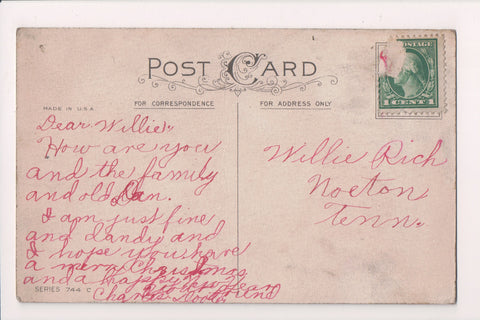 POST CARD
MADE IN U.S.A.
FOR CORRESPONDENCE
FOR ADDRESS ONLY
POSTAGE
1 CENT
Dear Willie,
How are you
and the family
and old Dan.
I am just fine
and dandy and
I hope you have
a merry Christmas
and a happy
friend
Charles
SERIES 744 C
Willie Rich
Norton
Tenn.